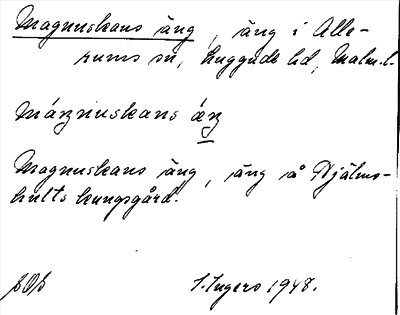 Magnuskans äng, äng i Alle-
rums sn, Luggude hd, Malm.l.
máŋnuskans æŋ
Magnuskans äng, äng å Hjälms-
hults kungsgård.
S. Ingers 1948.